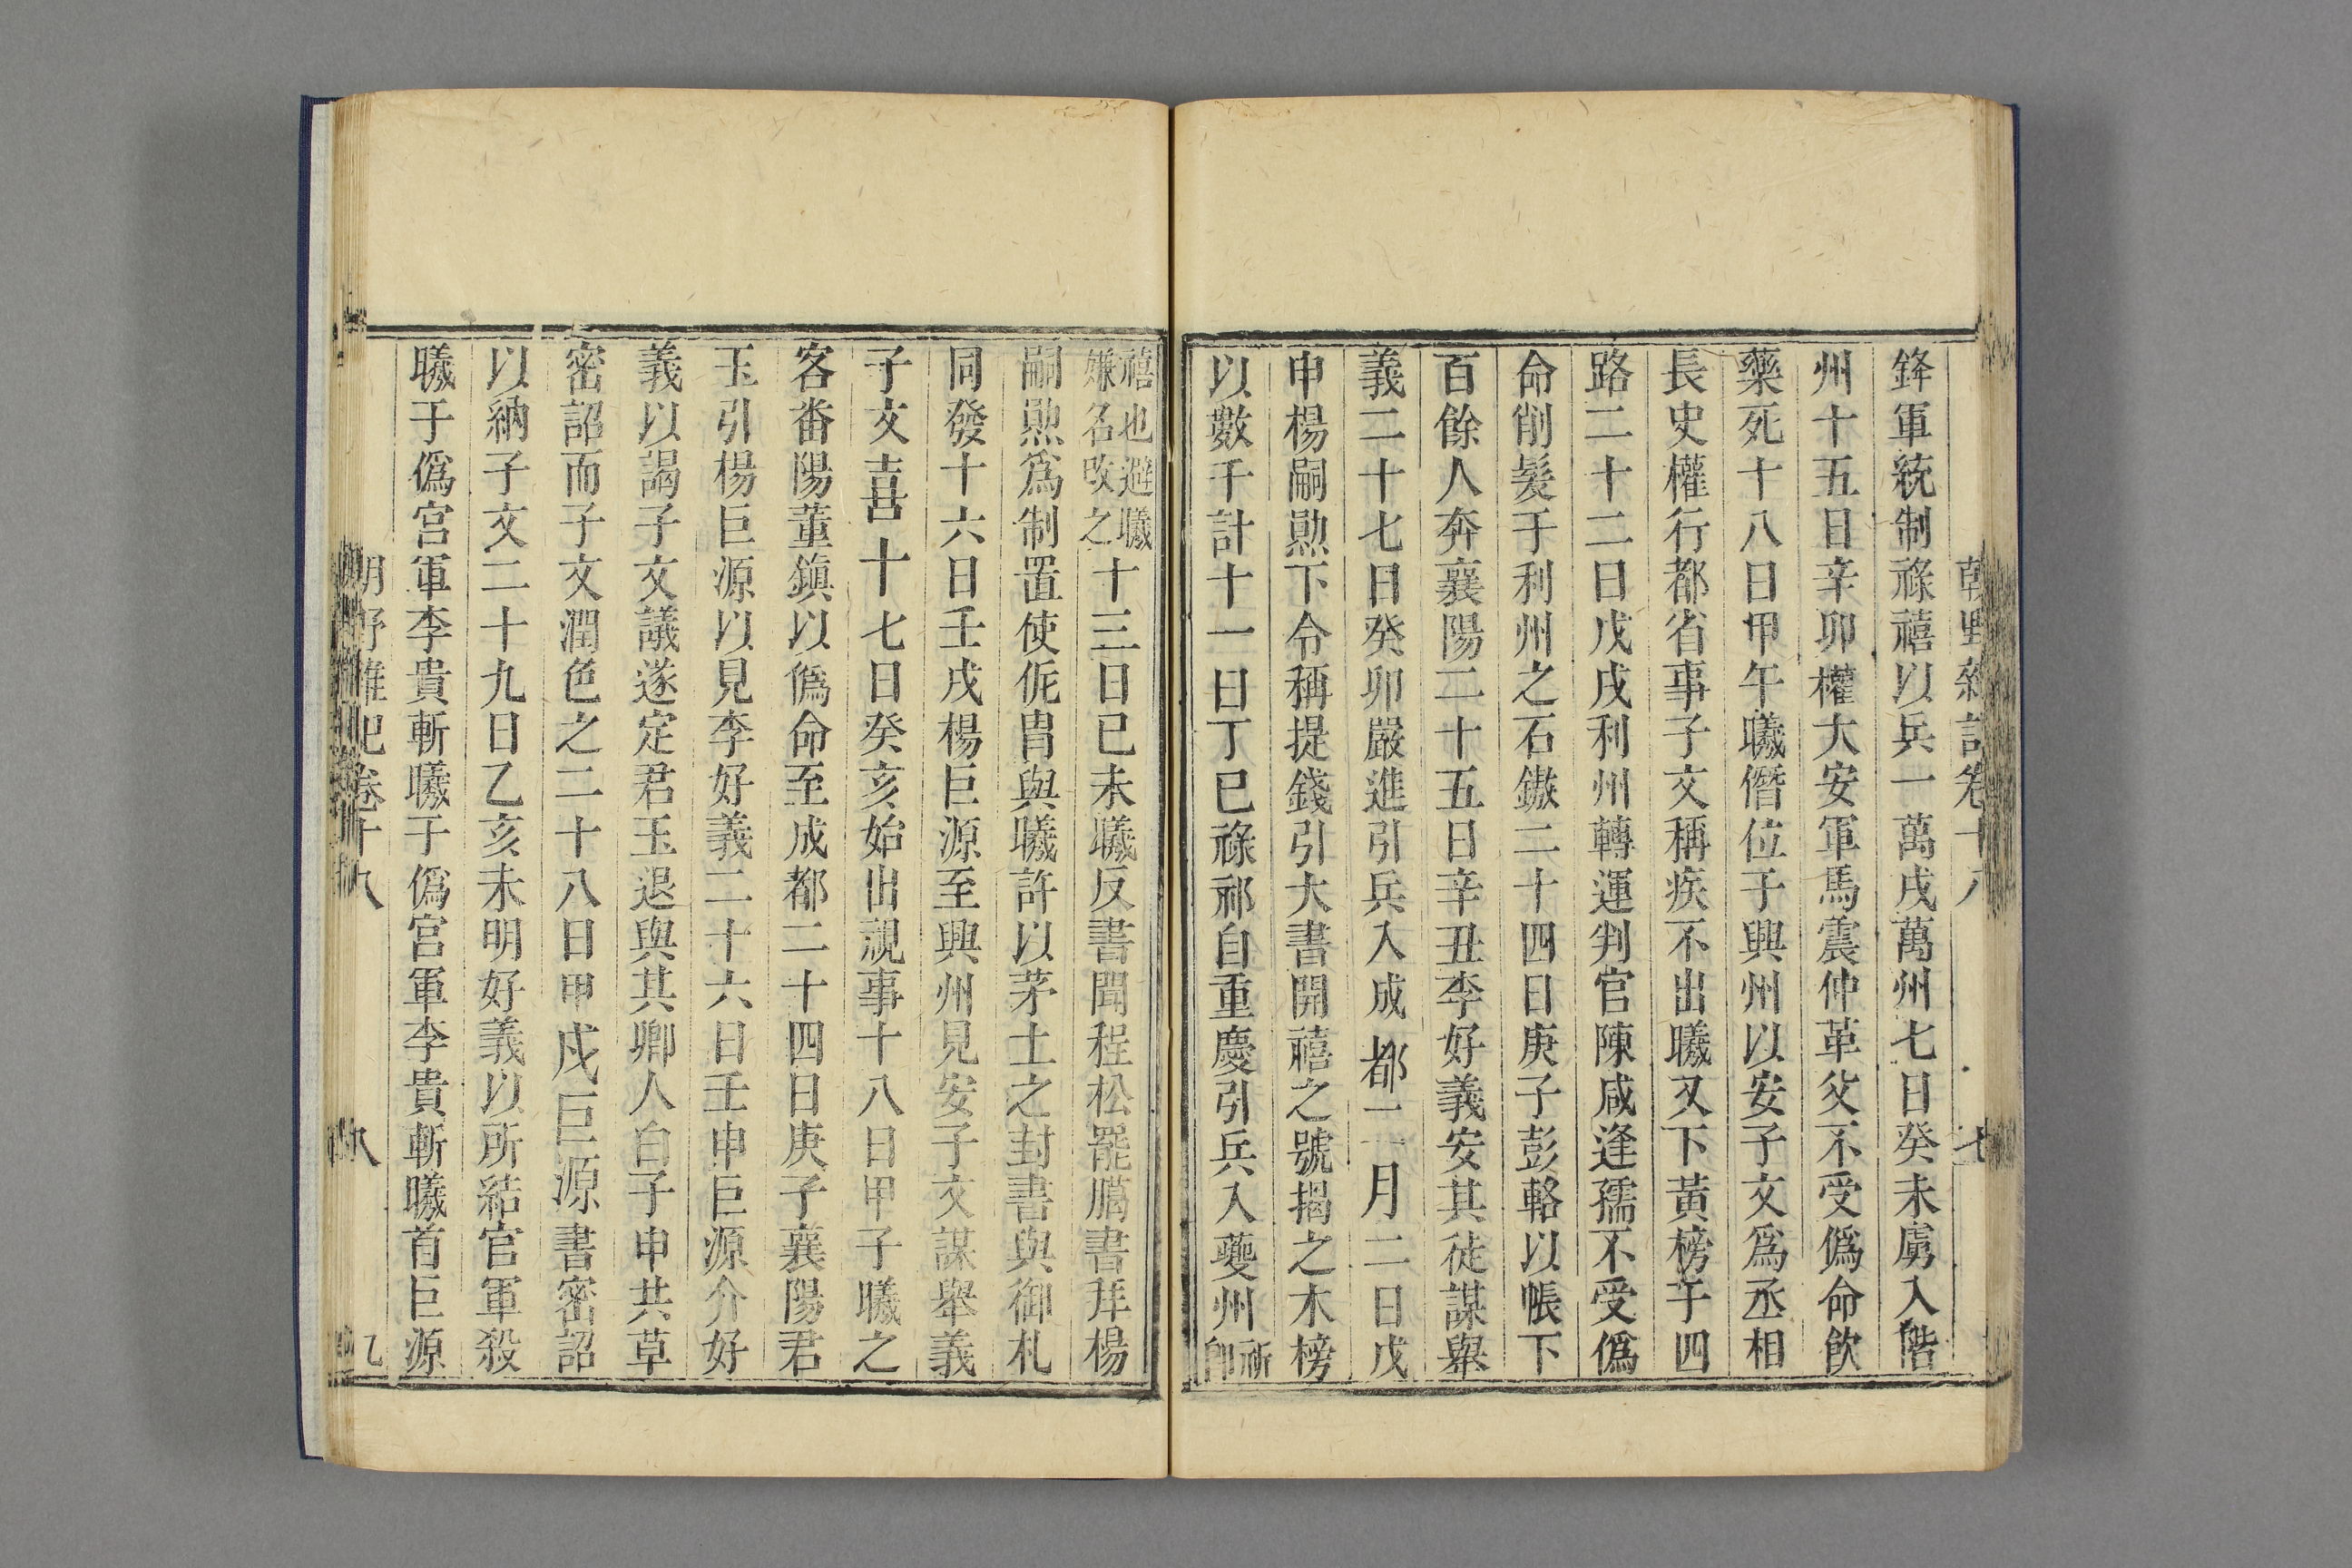 鋒軍統制祿禧以兵一萬戌萬州七日癸未虜入階
州十五日辛卯權大安軍馬震仲革父不受僞命飲
藥死十八日甲午曦僭位于興州以安子文爲丞相
長史權行都省事子文稱疾不出曦又下黃榜于四
路二十二日戊戌利州轉運判官陳咸逢孺不受僞
命削髮于利州之石鏃二十四日庚子彭輅以帳下
百餘人奔襄陽二十五日辛丑李好義安其徒謀舉
義二十七日癸卯嚴進引兵入成都二月二日戊
申楊嗣勲下令稱提錢引大書開禧之號揭之木榜
以數千計十一日丁巳祿祁自重慶引兵入夔州祈卽
禧也避曦嫌名改之十三日己未曦反書聞程松罷臈書拜楊
嗣勲爲制置使侂胄與曦許以茅土之封書與御札
同發十六日壬戌楊巨源至興州見安子文謀舉義
子文喜十七日癸亥始出視事十八日甲子曦之
客畨陽董鎮以僞命至成都二十四日庚子襄陽君
玉引楊巨源以見李好義二十六日壬申巨源介好
義以謁子文議遂定君玉退與其卿人白子申共草
密詔而子文潤色之二十八日甲戌巨源書密詔
以納子文二十九日乙亥未明好義以所結官軍殺
曦于僞宮軍李貴斬曦于僞宮軍李貴斬曦首巨源
朝野雜記卷十八
八